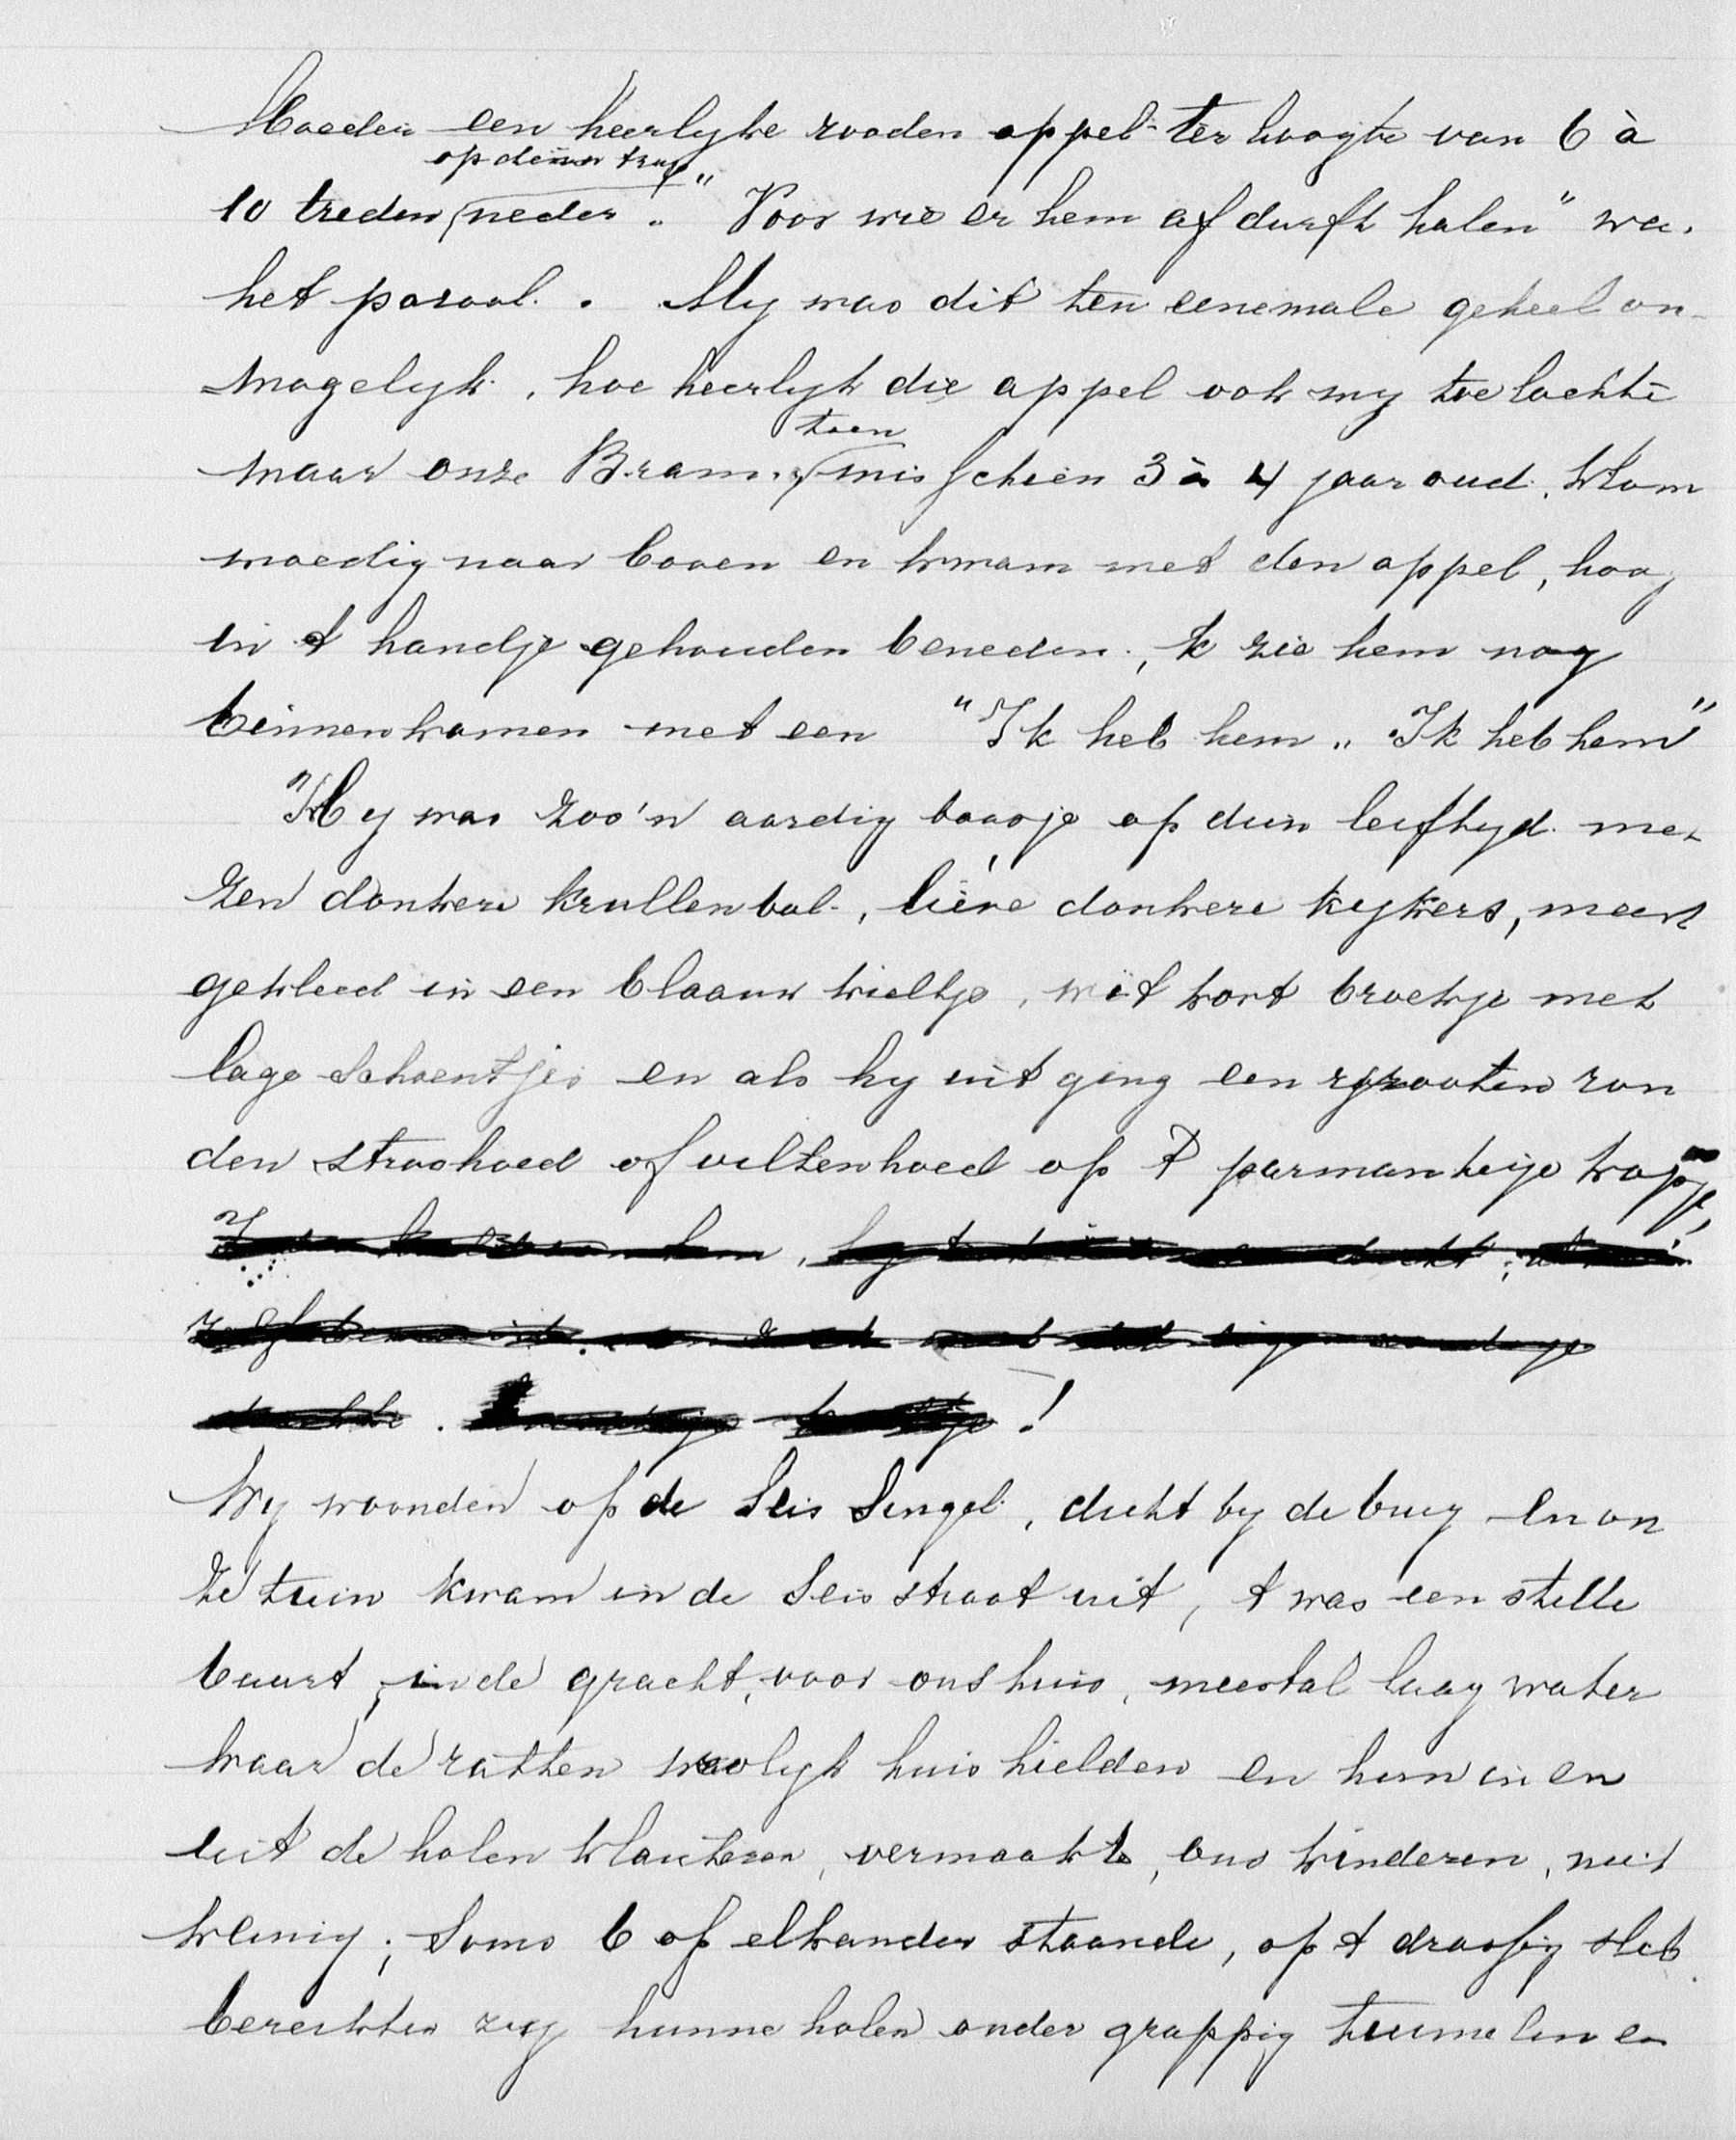 Moeder een heerlyke rooden appel ter hoogte van 6 à
op dienen trap
10 treden neder. "Voor wie er hem af durft halen" was
het parool. My was dit ten eenemale geheel on-
mogelyk, hoe heerlyk die appel ook my toe lachte
toen
maar onze Bram, misschien 3 à 4 jaar oud, klom
moedig naar boven en kwam met den appel, hoog
in 't handje gehouden beneden, 'k zie hem nog
binnenkomen met een "Ik heb hem" "Ik heb hem"
Hy was zoo'n aardig baasje op dien leeftyd met
zen donkere krullenbol, lieve donkere kykers, meest
gekleed in een blaauw kieltje, wit kort broekje met
lage schoentjes en als hy uit ging een grooten ron
den stroohoed of viltenhoed op 't parmantige kopje,
Wy woonden op de Leis Singel, dicht by de brug en on
ze tuin kwam in de Leis straat uit, 't was een stille
buurt, in de gracht, voor ons huis, meestal laag water
waar de ratten vroolyk huis hielden en hun in en
uit de holen klauteren, vermaakte, ons kinderen, niet
weinig; Soms 6 op elkander staande, op 't drassig slib
bereikten zy hunne holen onder grappig tuimelen en